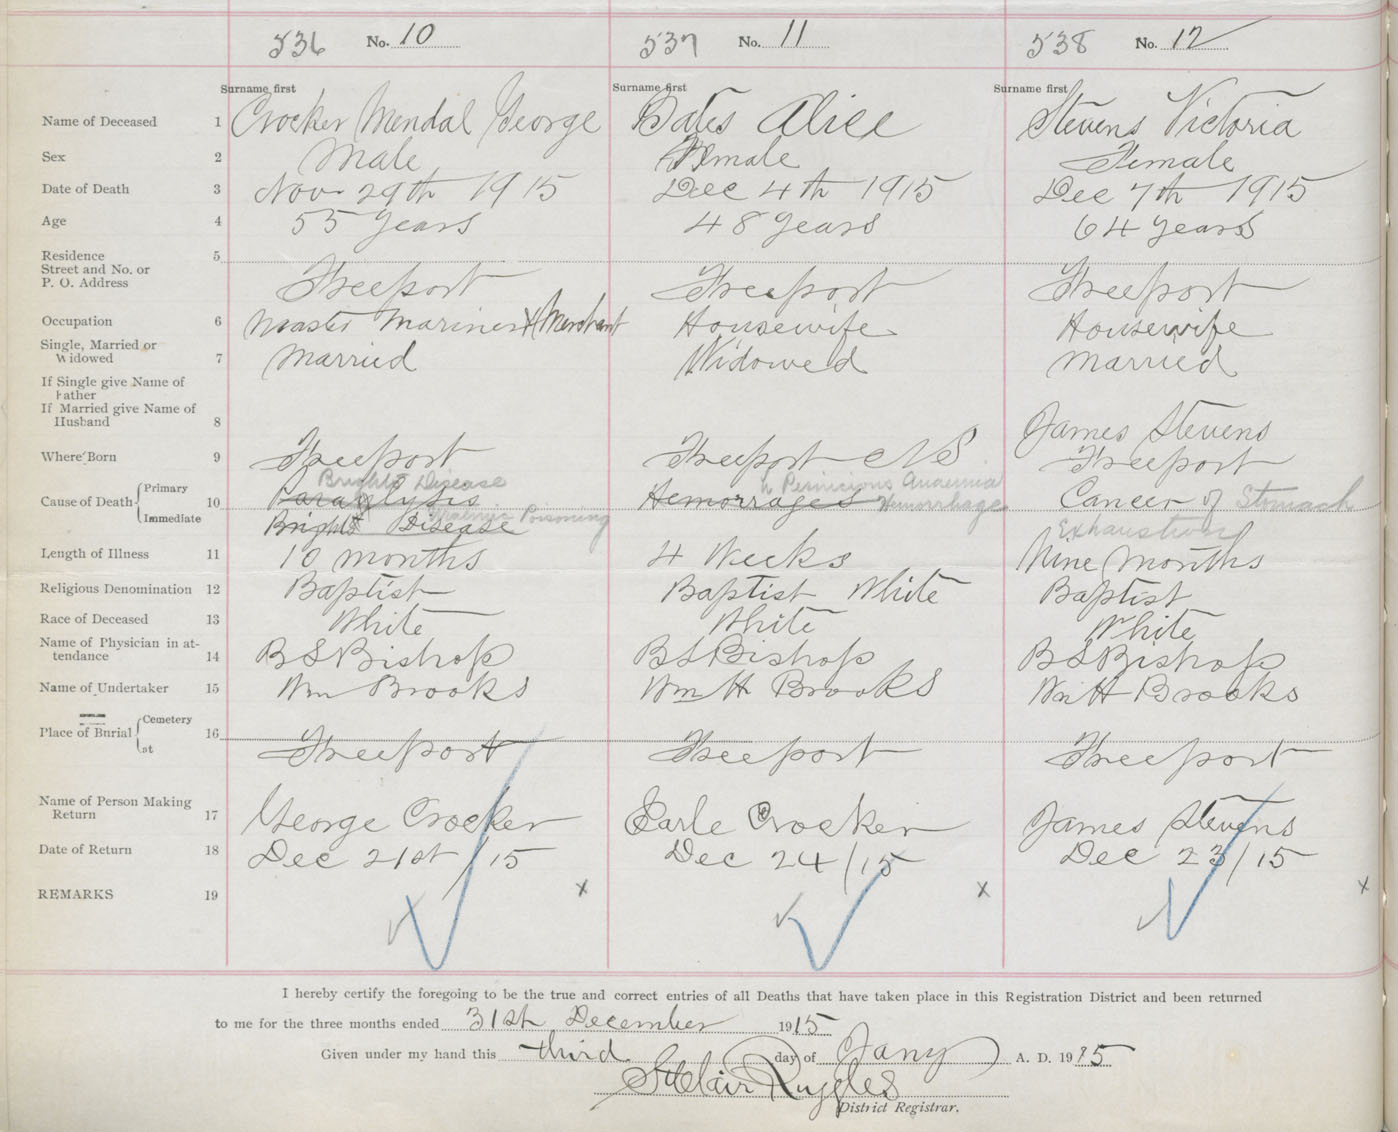 536 No. 10 537 No. 11 538 No. 12
Surname first Surname first Surname first
Name of Deceased 1 Crocker Mendal George Bates Alice Stevens Victoria
Sex 2 Male Female Female
Date of Death 3 Nov 29th 1915 Dec 4th 1915 Dec 7th 1915
Age 4 55 years 48 years 64 years
Residence 5
Street and No. or
P. O. Address Freeport Freeport Freeport
Occupation 6 Master Mariner & Merchant Housewife Housewife
Single, Married or
Widowed 7 Married Widowed Married
If Single give Name of
Father
If Married give Name of
Husband 8 James Stevens
Where Born 9 Freeport Freeport NS Freeport
Brights Disease Pernicious Anaemia
Cause of Death Primary 10 Paralysis Hemorrages Hemorrhage Cancer of Stomach
Immediate Brights Disease Poisoning Exhaustion
Length of Illness 11 10 months 4 Weeks Nine Months
Religious Denomination 12 Baptist Baptist White Baptist
Race of Deceased 13 White White White
Name of Physician in at-
tendance 14 B S Bishop B S Bishop B S Bishop
Name of Undertaker 15 Wm Brooks Wm H Brooks Wm H Brooks
Place of Burial Cemetery 16
at Freeport Freeport Freeport
Name of Person Making
Return 17 George Crocker Earle Crocker James Stevens
Date of Return 18 Dec 21st /15 Dec 24/15 Dec 23/15
REMARKS 19 x x x
I hereby certify the foregoing to be the true and correct entries of all Deaths that have taken place in this Registration District and been returned
to me for the three months ended 31st December 1915
Given under my hand this third day of Jany A. D. 1915
St Clair Ruggles
District Registrar.